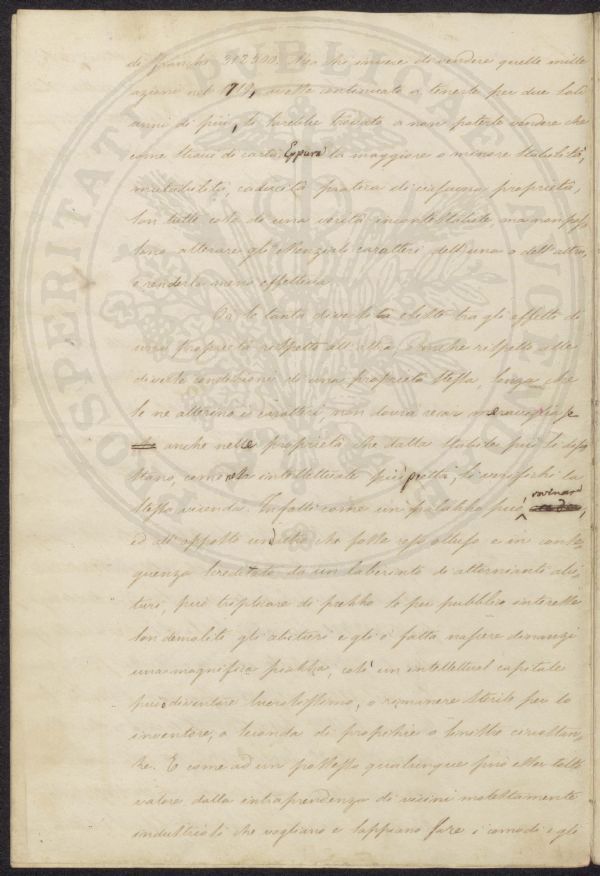 di franchi 312500. Ma chi invece di vendere quelle mille
azioni nel 1719, avesse continuato a tenerle per due soli
anni di più, le sarebbe trovato a non poterle vendere che
come stracci di carta. Eppure la maggiore o minore stabilità,
mutabilità, caducità pratica di ciascuna proprietà,
son tutte cose di una verità incontestabile, ma non pos-
sono alterare gli essenziali caratteri dell'una o dell'altra,
o renderla meno effettiva.
Da se tanta diversità esiste tra gli effetti di
una proprietà rispetto all'altra, o anche rispetto alle
diverse condizioni di una proprietà stessa, senza che
se ne alterino i caratteri non dovrà recar meraviglia se
anche nelle proprietà che dalla stabilità più si disco
stano, come nella intellettuale più pretta, si verifichi la
stessa vicenda. Infatti come un palazzo può rovinare,
ed all'opposto un altro che fosse reso obliquo e in conse-
guenza screditato da un laberinto di attornianti abi-
turi, può triplicare di prezzo se per pubblico interesse
son demoliti gli abituri e gli è fatta nascere dinanzi
una magnifica piazza, così un intellettual capitale
può diventare lucrosissimo, o rimanere sterile per lo
inventore, a seconda di propizie o sinistre circostan-
ze. E come ad un possesso qualunque può esser tolto
valore dalla intraprendenza di vicini molestamente
industriosi che vogliano e sappiano fare i comodi e gli